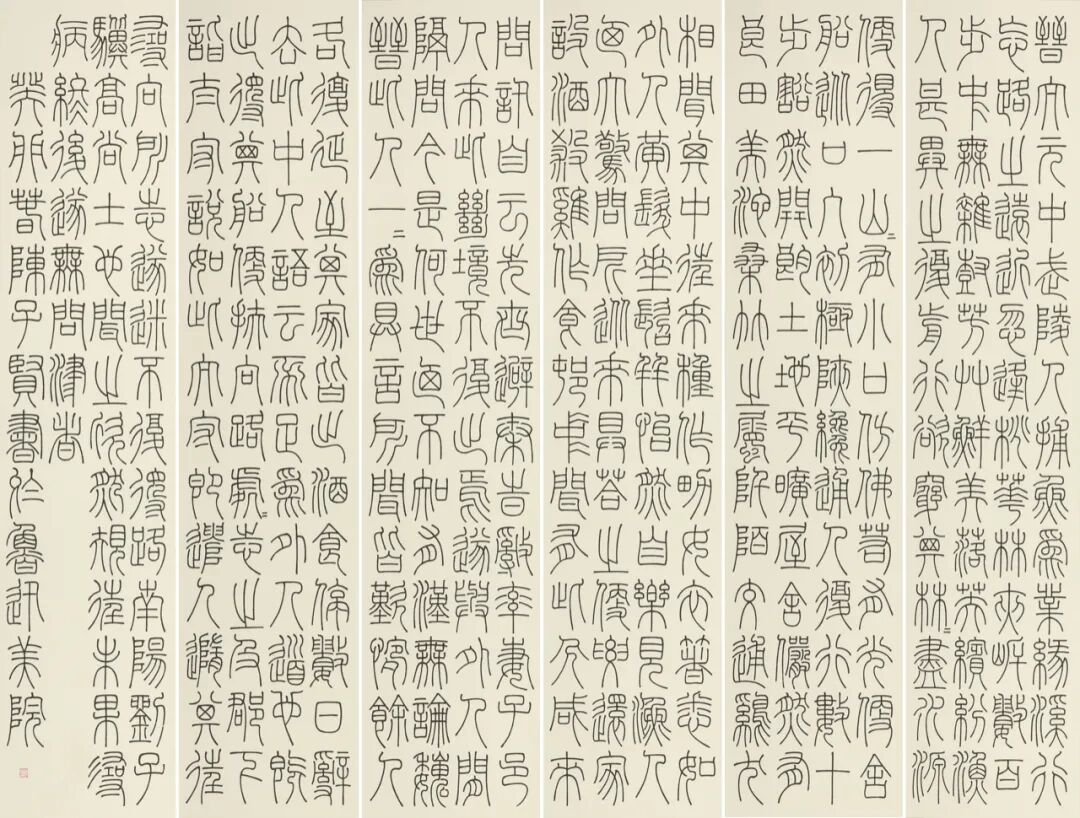 晉太元中武陵人捕魚爲業緣溪行
忘路之遠近忽逢桃華林夾岸數百
步中無雜樹芳艸鮮美落英繽紛漁
人甚異之復前行欲窮其林々盡水源
便得一山々有小口仿佛若有光便舍
船從口入初極陝纔通人復行數十
步豁然開朗土地平曠屋舍儼然有
良田美池桑竹之屬阡陌交通雞犬
相聞其中往來種作男女衣箸悉如
外人黃髮垂髫並怡然自樂見漁人
乃大驚問所從來具答之便要還家
設酒殺雞作食村中聞有此人咸來
問訊自云先世避秦時亂率妻子邑
人來此絕境不復出焉遂與外人間
隔問今是何世乃不知有漢無論魏
晉此人一々爲具言所聞皆歎惋餘人
各復延至其家皆出酒食停數日辭
去此中人語云不足爲外人道也既
出得其船便扶向路處々志之及郡下
詣太守說如此太守即遣人隨其往
尋向所志遂迷不復得路南陽劉子
驥高尚士也聞之欣然規往未果尋
病終後遂無問津者
癸卯春陳子賢書於魯迅美院